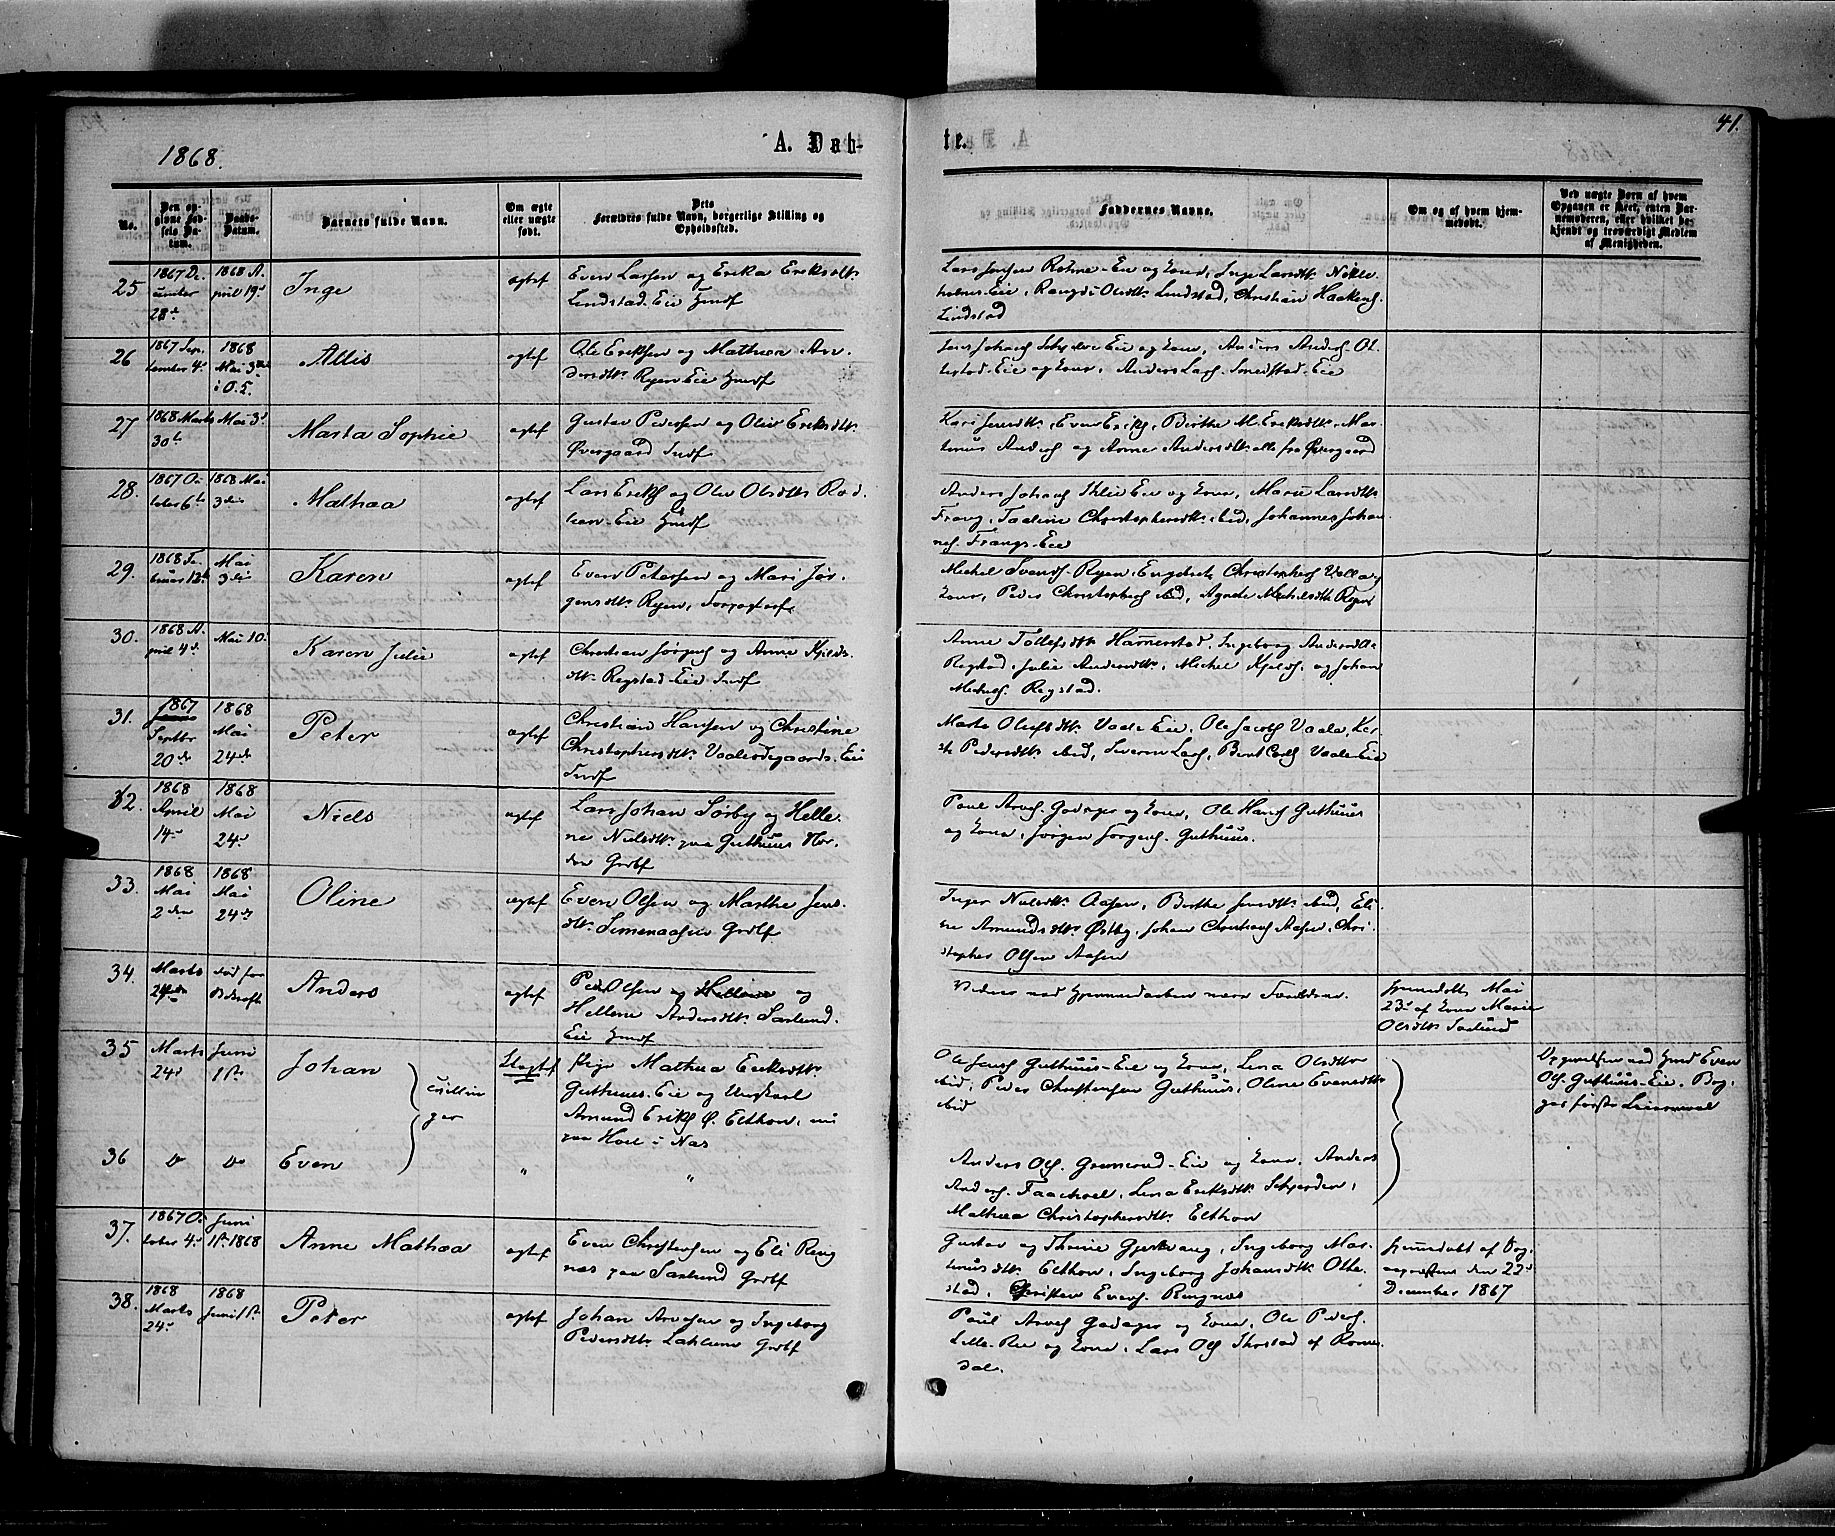 41.
1868.
A. Døb-
te.
No.
Den opgivne Fødsels Datum.
Daabs-Datum.
Barnets fulde Navn.
Om ægte eller uægte født.
Dets Forældres fulde Navn, borgerlige Stilling og Opholdssted.
Faddernes Navne.
Om og af hvem hjemmedøbt.
Ved uægte Børn af hvem Opgaven er skeet, enten Barnemoderen, eller hvilket bekjendt og troværdigt Medlem af Menigheden.
25
1867 De-
cember
28de
1868 A-
pril 19de
Inge
ægtef
Even Larsen og Erika Eriksdtr
Lindstad Eie Huusf
Lars Jensen Rohne-Eie og Kone, Inge Larsdtr Nekle-
holms-Eie, Rangdi Olsdtr Lindstad, Christian Haakens.
Lindstad
26
1867 Sep-
tember 4de
1868
Mai 3die
i O.S.
Allis
ægtef
Ole Eriksen og Mathea An-
dersdtr Ryen Eie Huusf
Eie og Kone, Anders Anders. Ol-
lestad-Eie og Kone, Anders Lars. Smedstad-Eie
27
1868 Marts
30te
Mai 3die
Marta Sophie
ægtef
Gustav Pedersen og Oliv Eriksdtr
Øvergaard Indf
Kari Jensdtr, Even Eriks, Birthe M. Eriksdtr, Mar-
tinus Anders og Anne Andersdtr alle fra Øvergaard
28.
1867 Oc-
tober 6te
1868 Mai
3die
Mathea
ægtef
Lars Eriks og Oliv Olsdtr Rod-
Eie Huusf
Anders Johans Eie og Kone, Marie Larsdtr
Frang, Christophersdtr ibid, Johannes Johan-
nes. Frangs-Eie
29.
1868 Fe-
bruar 12te
Mai
3die
Karen
ægtef
Even Petersen og Mari Jør-
gensdtr Ryen,
Mickel Svends. Ryen, Engebret Christophers. Valla og
Kone, Peder Christophers ibid, Agnete Mickelsdtr Ryen
30.
1868 A-
pril 4de
Mai 10.
Karen Julie
ægtef
Christian Jørgens og Anne Kjelds-
dtr. Regstad-Eie Indf
Anne Tollefsdtr Hamerstad, Ingeborg Andersdtr
Regstad, Julie Andersdtr, Mickel Kjelds. og Johan
Mickels. Regstad.
31.
1867
Septbr
20de
1868
Mai
24de
Peter
ægtef
Christian Hansen og Christine
Christophersdtr. Vaaleødegaards-Eie
Indf
Marte Olufsdtr Vaale Eie, Ole Jacobs Vaale, Ker-
ste Pedersdtr ibid, Severin Lars, Bent Carls Vaale-Eie
32.
1868
April
14de
1868
Mai
24de
Niels
ægtef
Lars Johan Sørby og Helle-
ne Nielsdtr paa Guthuus Nor-
dre Grdbf
Paul Arves. Godager og Kone, Ole Hans Guthuus
og Kone, Jørgen Jørgens. Guthuus.
33.
1868
Mai
2den
1868
Mai
24de
Oline
ægtef
Even Olsen og Marthe Jens-
dtr. Simenaasen Grdbf
Inger Nielsdtr Aasen, Birthe Jensdtr ibid, Eli-
ne Amundsdtr Østby, Johan Christians Aasen, Chri-
stopher Olsen Aasen
34.
Marts
død før
Bekræft
Anders
ægtef
Peder Olsen og Hellene og
Hellene Andersdtr. Saxlund-
Eie Huusf
Vidner ved Hjemmedaaben vare Forældrene.
Hjemmedøbt Mai
23de af Kone Marie
Olsdtr Saxlund
35
Marts
24de
Juni
1ste
Johan
Tvillin-
ger
Uægtef
Pige Mathea Eriksdtr.
Guthuus-Eie og Ungkarl
Amund Eriks Ø. Elthon, nu
paa Hoel i Næs
Ole Jens. Guthuus-Eie og Kone, Lena Olsdtr
ibid, Peder Christensen Guthuus, Oline Evensdtr
ibid
Opgivelsen ved Huusf Even
Ols. Guthuus-Eie. Beg-
ges første Leiermaal
36
Do
Do
Even
"
"
Anders Ols. Grønerud-Eie og Kone, Anders
Anders. Faachoel, Lena Eriksdtr Skjerden,
Mathea Christophersdtr. Elthon
37.
1867 Oc-
tober 4de
Juni
1ste 1868
Anne Mathea
ægtef
Even Christensen og Eli Ring-
næs paa Saxlund Grdbf
Gustav og Thrine Gjerkvang, Ingeborg Mar-
tinusdtr Elthon, Ingeborg Johansdtr Olle-
stad, Christen Evens. Ringnæs
Hjemmedøbt af Sog-
nepresten den 22de
December 1867
38.
1868
Marts
24de
1868
Juni 1ste
Peter
ægtef
Johan Arvesen og Ingeborg
Pedersdtr Lahlum Grdbf
Paul Arves Godager og Kone, Ole Peders.
Lille-Ree og Kone, Lars Ols Thostad af Roms-
dal.